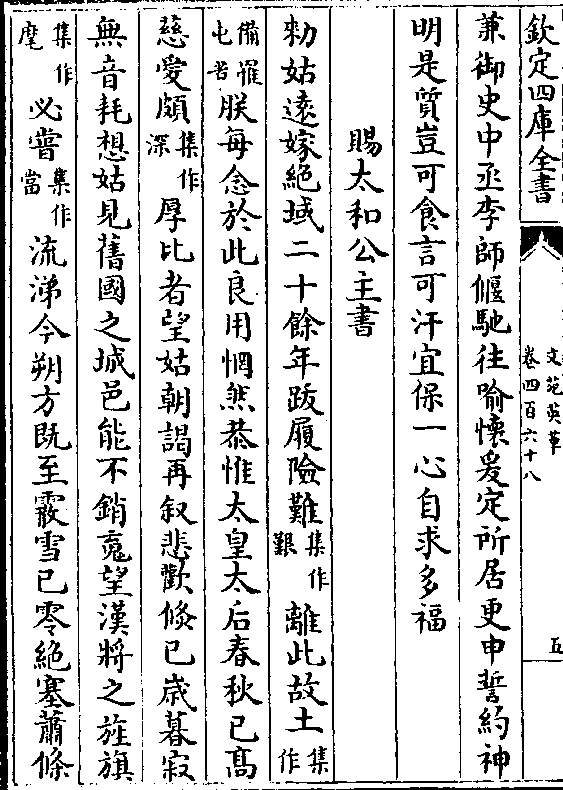 欽定四庫全書
文苑英華
卷四百六十八
五
兼御史中丞李師偃馳往喻懷爰定所居更申誓約神
明是質豈可食言可汗宜保一心自求多福
賜太和公主書
勑姑逺嫁絶域二十餘年跋履險難集作艱離此故土集作
備罹屯苦朕毎念於此良用惘然恭惟太皇太后春秋已髙
慈愛頗集作深厚比者望姑朝謁再叙悲歡倐已歳暮寂
無音耗想姑見舊國之城邑能不銷䰟望漢將之旌旗
集作麾必嘗集作當流涕今朔方既至霰雪已零絶塞蕭條